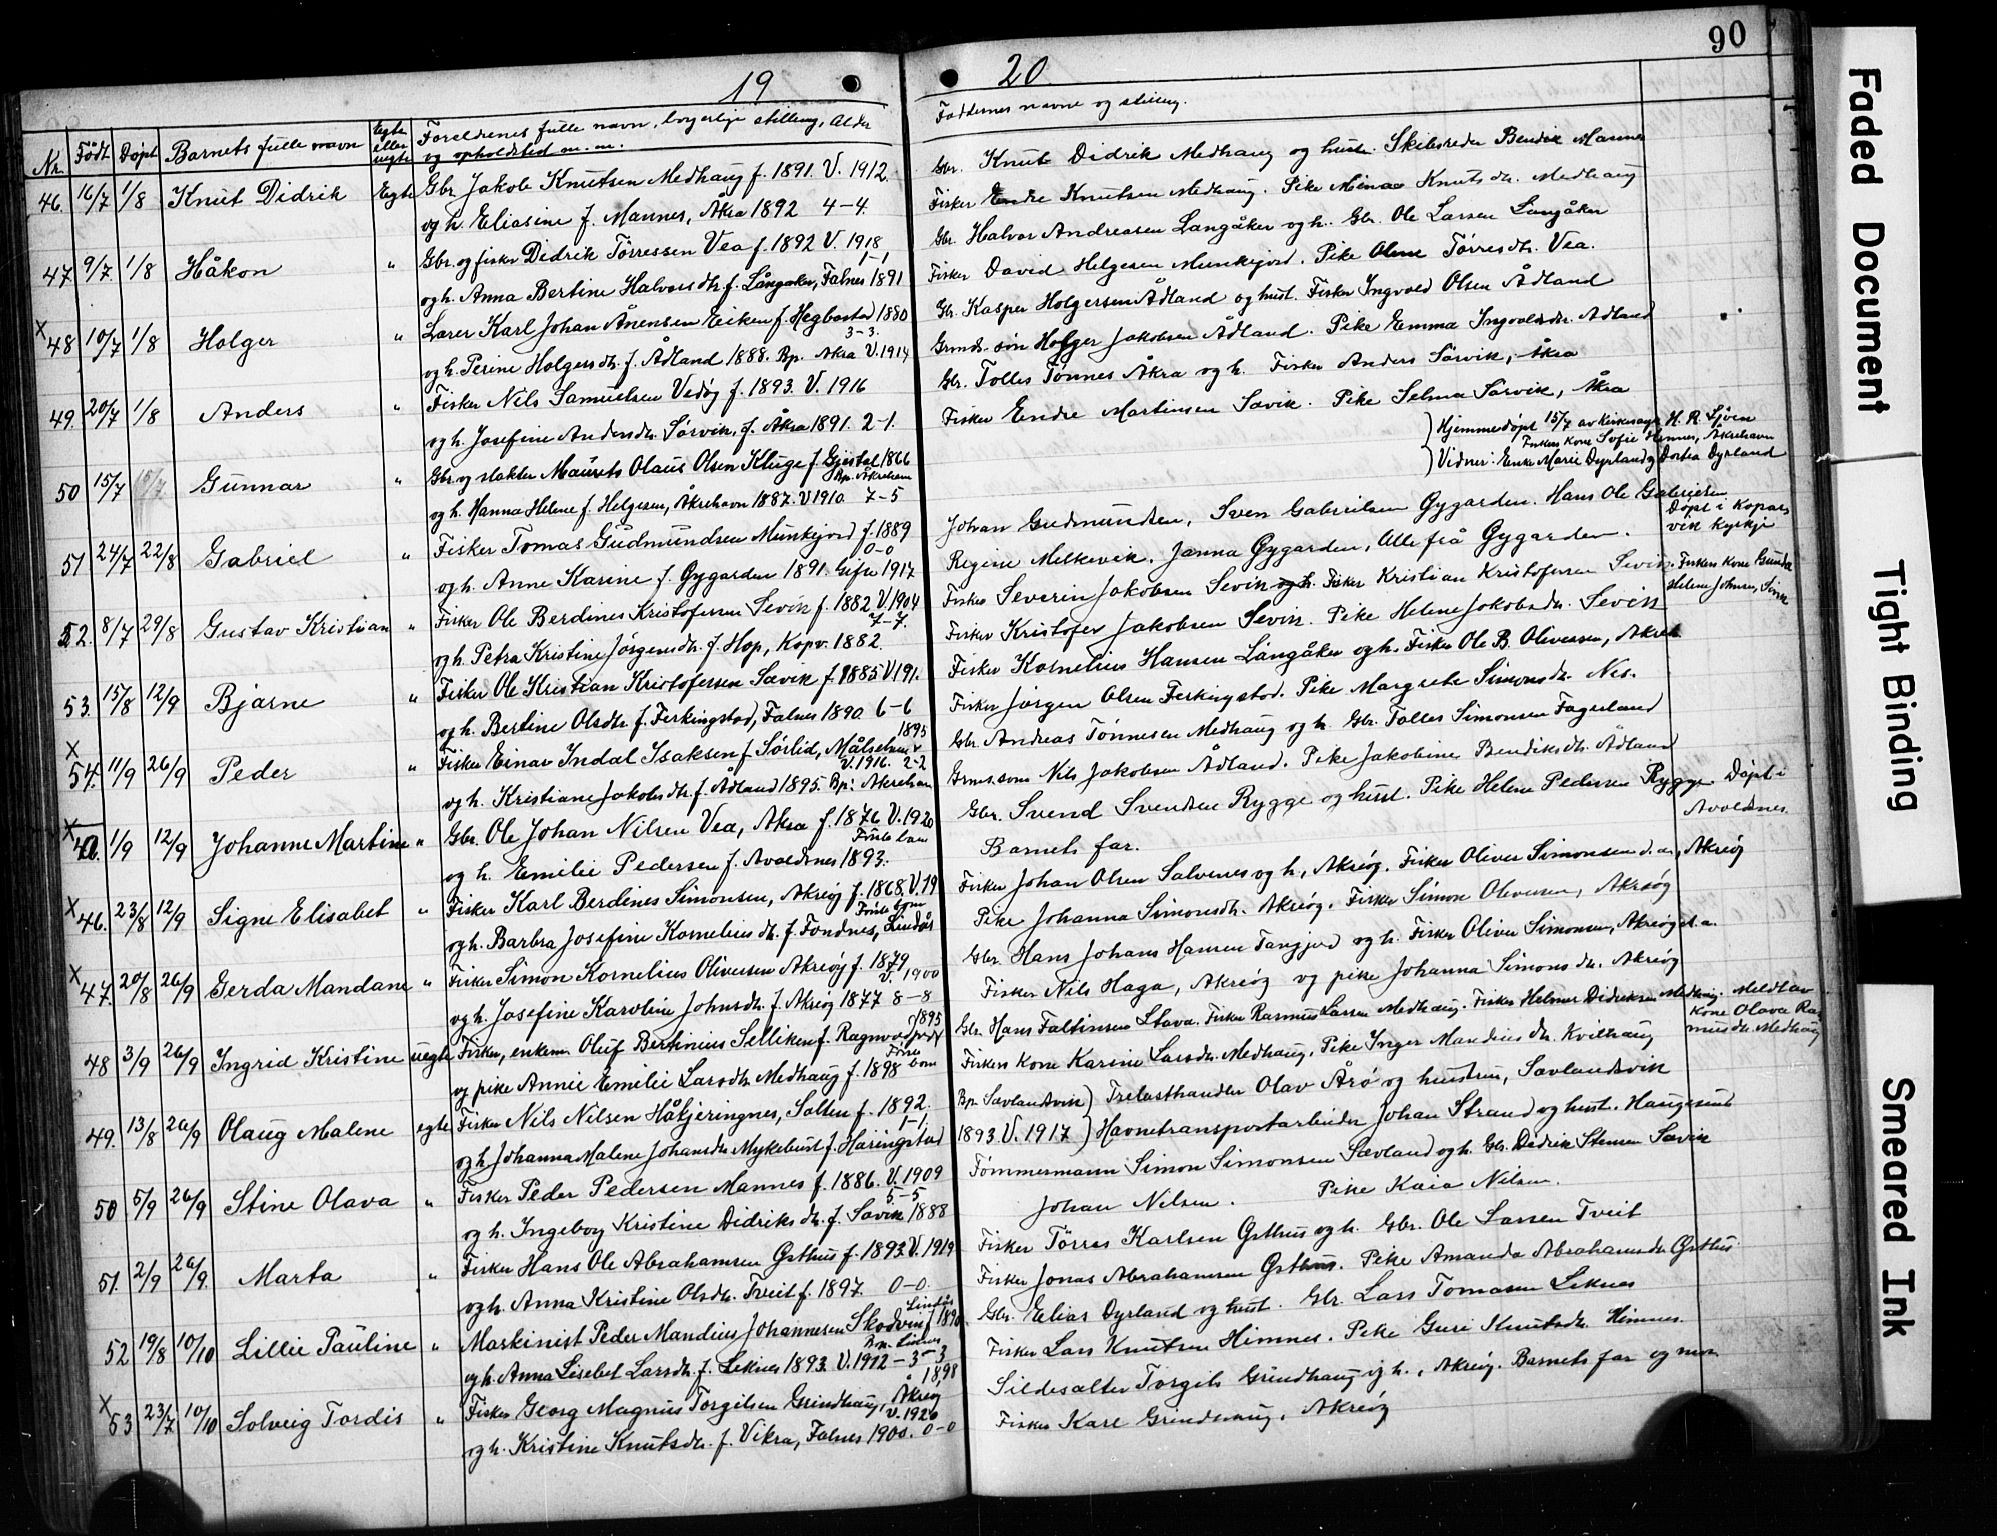 90
19
20
Nr. Født Døpt Barnets fulle navn Egte eller uegte Foreldrenes fulle navn, borgerlige stilling, Alder og opholdsted m. m.
Faddernes navne og stilling.
46. 16/7 1/8 Knut Didrik Egte Gbr. Jakob Knutsen Medhaug f. 1891. V. 1912.
og h. Eliasine f. Mannes, Åkra 1892 4-4.
Gbr. Knut Didrik Medhaug og hustr. Skibsreder Bendik Mannes
Fisker Endre Knutsen Medhaug. Pike Mina Knutsdtr. Medhaug
47. 9/7 1/8 Håkon " Gbr. og fisker Didrik Tørressen Vea f. 1892 V. 1918
1-1
og h. Anna Bertine Halvorsdtr. f. Långåker, Falnes 1891
Gbr. Halvor Andreasen Langåker og h. Gbr. Ole Larsen Langåker
Fisker David Helgesen Munkejord. Pike Oline Tørresdtr. Vea.
x 48 10/7 1/8 Holger " Lærer Karl Johan Ånensen Eiken f. Hegbostad 1880
3-3.
og h. Perine Holgersdtr. f. Ådland 1888. Bp. Akra V. 1914
Gbr. Kasper Holgersen Ådland og hust. Fisker Ingvald Olsen Ådland
Grmds. søn Holger Jakobsen Ådland. Pike Emma Ingvaldsdtr. Ådland
49. 20/7 1/8 Anders " Fisker Nils Samuelsen Vedøy f. 1893. V. 1916
og h. Josefine Andersdtr. Sørvik, f. Åkra 1891. 2-1.
Gbr. Tolles Tønnes Åkra og h. Fisker Anders Sørvik, Åkra
Fisker Endre Martinsen Sævik. Pike Selma Sørvik, Åkra
50 15/7 15/7 Gunnar " Gbr. og slakter Maurets Olaus Olsen Kluge f. Gjestal 1866
Bp. Åkrehavn
og h. Hanna Helene f. Helgesen, Åkrehavn 1887. V 1910. 7-5
Hjemmedøpt 15/7 av H. R. Sjøen
Fiskers kone Sofie Hemnes, Åkrehavn
Vidner: Enke Marie Dyrland og Dortea Dyrland
51 24/7 22/8 Gabriel " Fisker Tomas Gudmundsen Munkejord f. 1889
0-0
og h. Anne Karine f. Øygarden 1891. Gifte 1917
Johan Gudmundsen, Sven Gabrielsen Øygarden. Hans Ole Gabrielsen
Regine Melkevik, Janna Øygarden, Alle frå Øygarden.
Døpt i Kopervik kyrkje
52. 8/7 29/8 Gustav Kristian " Fisker Ole Berdines Kristofersen Sevik f. 1882 V. 1904
7-7.
og h. Petra Kristine Jørgensdtr. f. Hop, Kopv. 1882.
Fisker Severin Jakobsen Sevik og h. Fisker Kristian Kristofersen Sevik. Fiskers kone Gunda
Helene Johnsen, Sevik
Fisker Kristofer Jakobsen Sevik. Pike Helene Jakobsdtr. Sevik
53. 15/8 12/9 Bjarne " Fisker Ole Kristian Kristofersen Sævik f. 1885 V. 191.
og h. Bertine Olsdtr. f. Ferkingstad, Falnes 1890. 6-6
Fisker Kornelius Hansen Långåker og h. Fisker Ole B. Oliversen, Akreh.
Fisker Jørgen Olsen Ferkingstad. Pike Margrete Simonsdtr. Nes.
x 54. 11/9 26/9 Peder " Fisker Einar Indal Isaksen f. Sørlid, Målselven 1895
V. 1916. 2-2
og h. Kristiane Jakobsdtr. f. Ådland 1895. Bp: Akrehavn
Gbr. Andreas Tønnesen Medhaug og h. Gbr. Tolles Simonsen Fagerland
Grms. søn Nils Jakobsen Ådland. Pike Jakobine Bendiksdtr. Ådland
x 1/9 12/9 Johanne Martine " Gbr. Ole Johan Nilsen Vea, Akra f. 1876 V. 1920
Første barn
og h. Emilie Pedersen f. Avaldsnes 1893.
Gbr. Svend Svendsen Rygge og hust. Pike Helene Pedersen Rygge. Døpt i
Avaldsnes.
Barnets far.
x 46. 23/8 12/9 Signe Elisabet " Fisker Karl Berdines Simonsen, Akreøy f. 1868, V. 19
Første barn
og h. Barbra Josefine Korneliusdtr. f. Fondnes, Lindås
Fisker Johan Olsen Salvenes og h., Akreøy. Fisker Oliver Simonsen d. æ., Akreøy
Pike Johanna Simonsdtr. Akreøy. Fisker Simon Oliversen, Akreøy
x 47. 20/8 26/9 Gerda Mandane " Fisker Simon Kornelius Oliversen Akreøy f. 1879
V. 1900
og h. Josefine Karoline Johnsdtr. f. Akreøy 1877 8-8
Gbr. Hans Johans Hansen Tangjerd og h. Fisker Oliver Simonsen, Akreøy d. æ.
Fisker Nils Haga, Akreøy og pike Johanna Simonsdtr. Akreøy
48 3/9 26/9 Ingrid Kristine uegte Fisker, enkem. Oluf BertiniusSelliken f. Ragnvaldsjord 1895
Første barn
og pike Annie Emilie Larsdtr. Medhaug f. 1898
Gbr. Hans Faltinsen Stava. Fisker Rasmus Larsen Medhaug. Fisker Helmer Didriksen Medhaug.
Kone Olava Rasmusdtr. Medhaug
Fiskers kone Karine Larsdtr. Medhaug, Pike Inger Mandiusdtr. Kvilhaug
49. 13/8 26/9 Olaug Malene egte Fisker Nils Nilsen Håkjeringnes, Salten f. 1892.
1-1,
og h. Johanna Malene Johansdtr. Myklebust f. Haringstad
Bp. Sævlandsvik) Trelasthandler Olav Årø og hustru, Sævlandsvik
1893. V. 1917) Havnetransportarbeider Johan Strand og hust. Haugesund
50 5/9 26/9 Stine Olava " Fisker Peder Pedersen Mannes f. 1886. V. 1909
5-5
og h. Ingeborg Kristine Didriksdtr. f. Sævik 1888
Tømmermann Simon Simonsen Sævland og h. Gbr. Didrik Stensen Sævik
Johan Nilsen. Pike Kaia Nilsen.
51. 2/9 26/9. Marta " Fisker Hans Ole Abrahamsen Østhus f. 1893. V. 1919
og h. Anna Kristine Olsdtr. Tveit f. 1897. 0-0.
Fisker Tørres Karlsen Østhus og h. Gbr. Ole Larsen Tveit
Fisker Jonas Abrahamsen Østhus. Pike Amanda Abrahamsdtr. Østhus
52 19/8 10/10 Lillie Pauline " Maskinist Peder Mandius Johannesen Skodvin f. Lindås 1890
og h. Anna Lisebet Larsdtr. f. Liknes 1893. V. 1912 - 3-3
Gbr. Elias Dyrland og hust. Gbr. Lars Tomasen Liknes
Fisker Lars Knutsen Himnes. Pike Guri Knutsdtr. Himnes.
x 53 23/7 10/10 Solveig Tordis " Fisker Georg Magnus Torgilsen Grindhaug, Åkreøy 1898
V. 1920
og h. Kristine Knutsdtr. f. Vikra, Falnes 1900. 0-0
Sildesalter Torgils Grindhaug og h., Akreøy. Barnets far og mor
Fisker Kare Grindhaug, Akreøy
Faded Document
Tight Binding
Smeared Ink